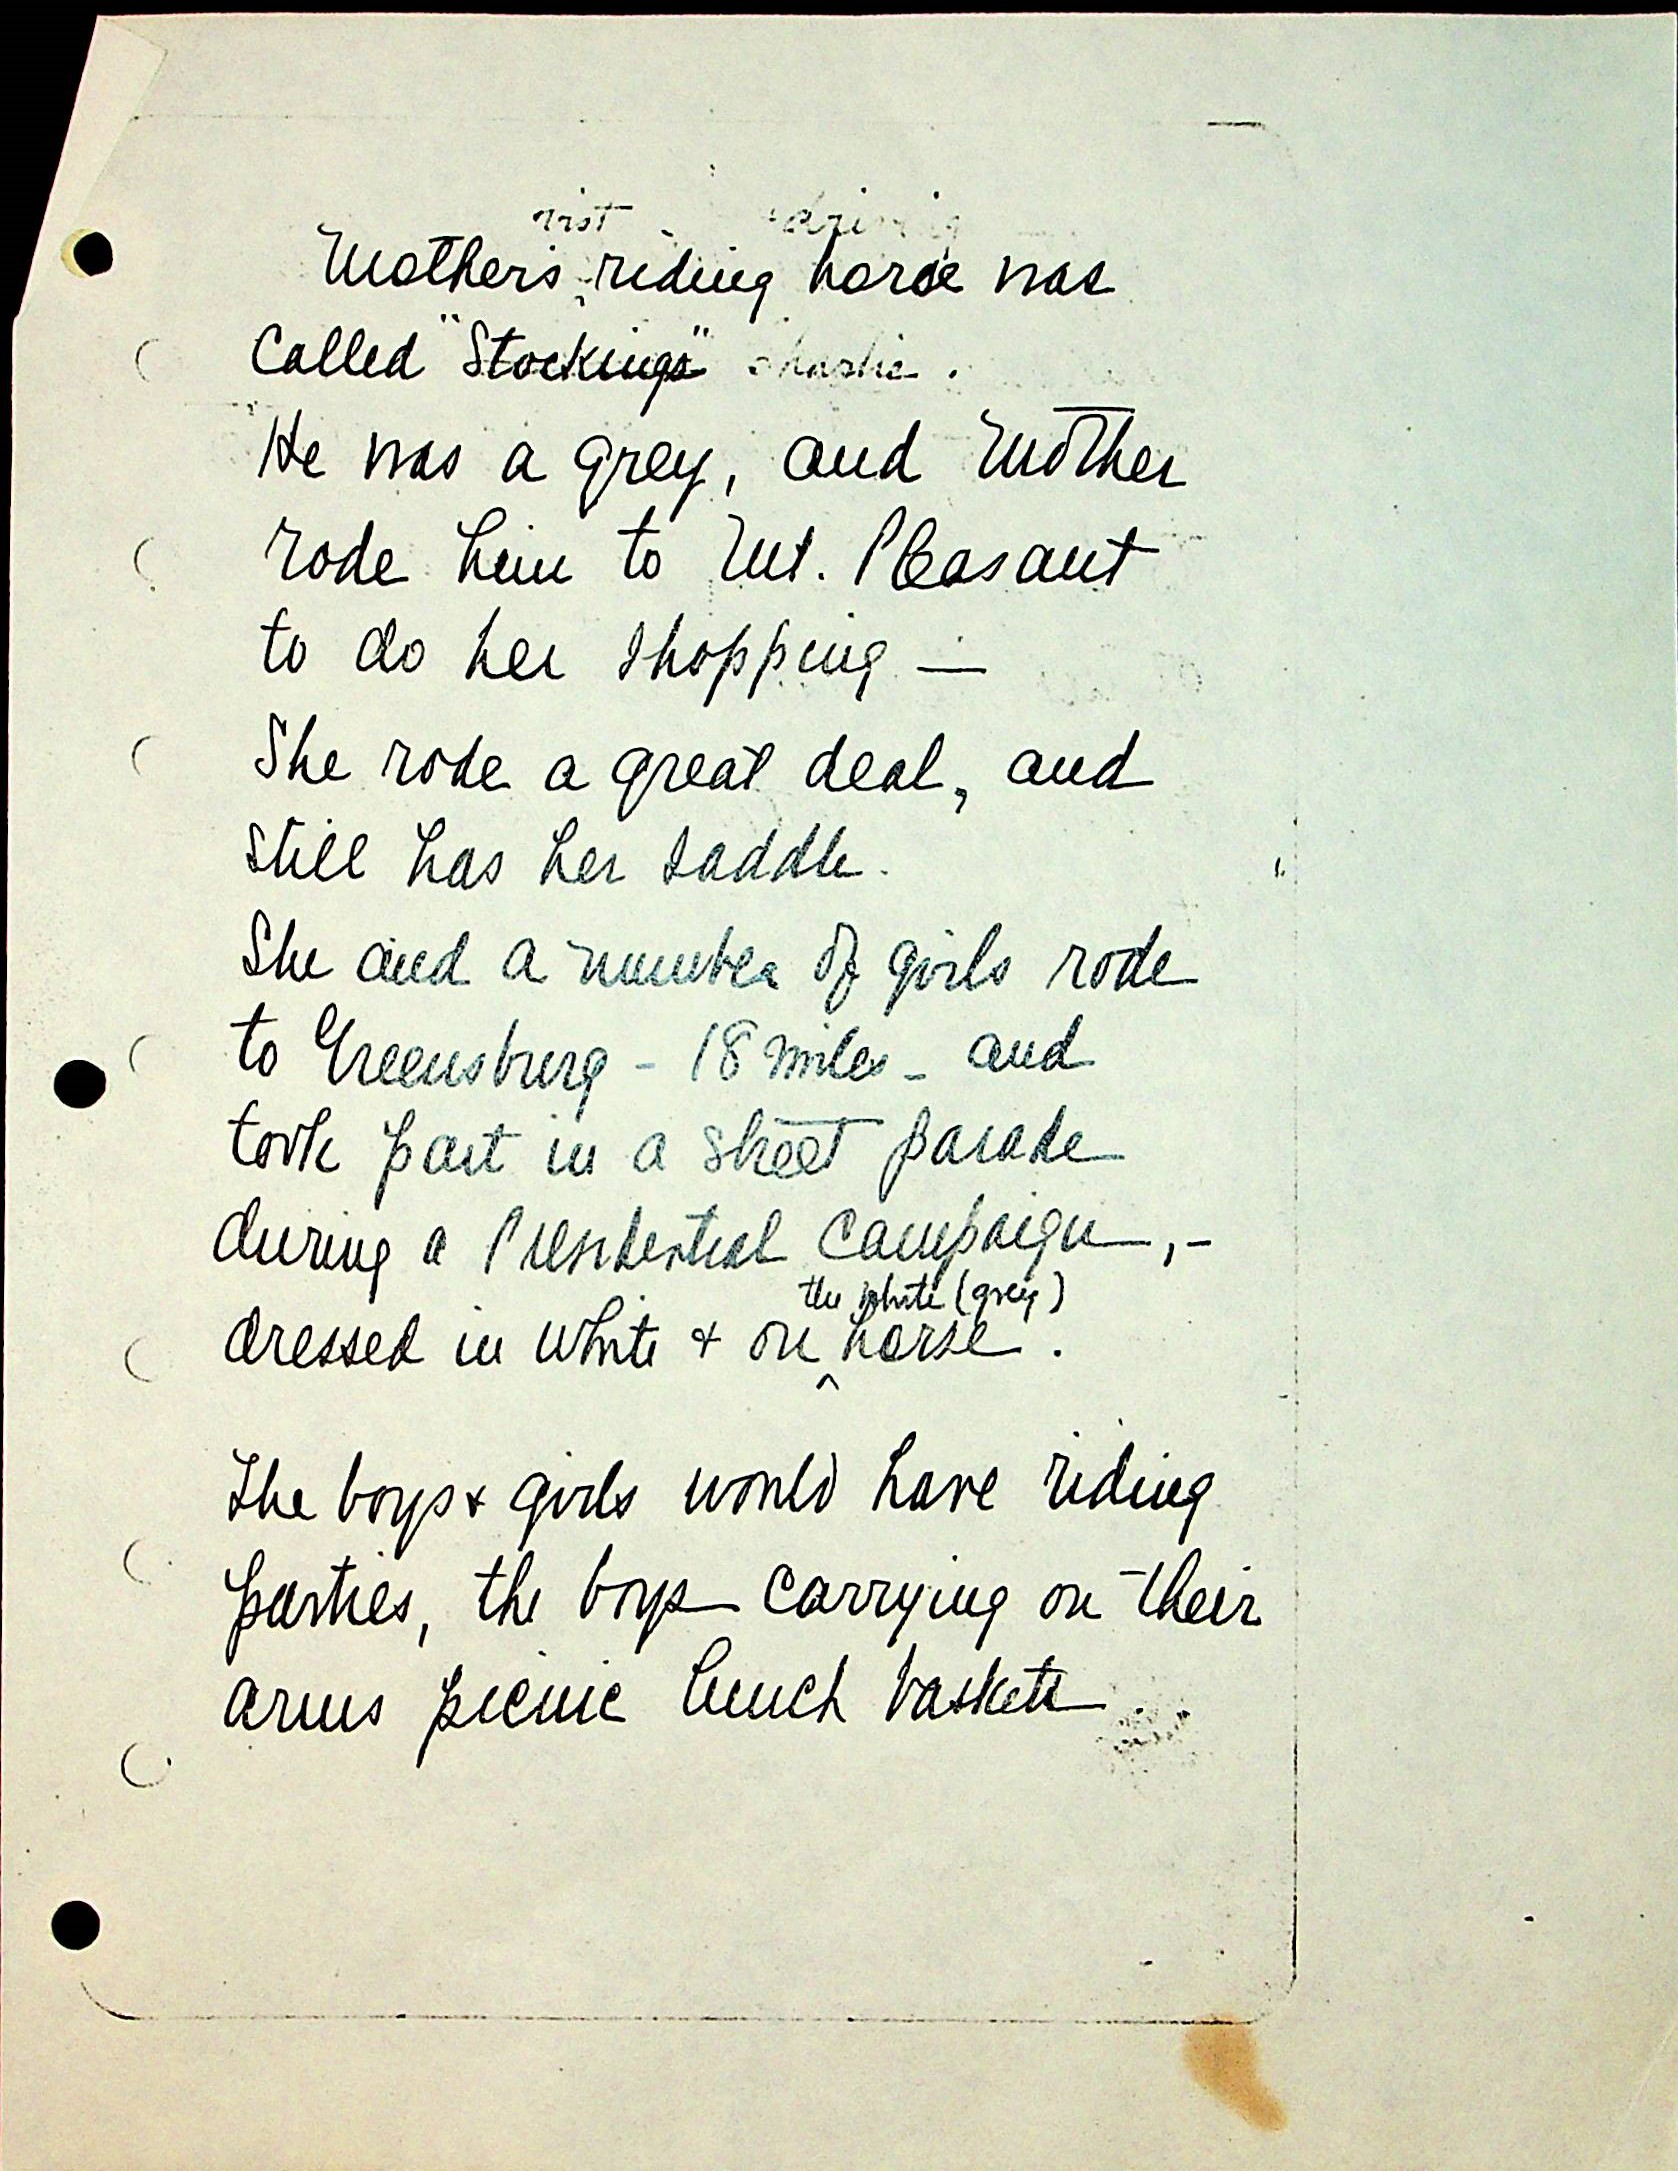 Mother's riding horse was
Called "Stockings" Charlie.
He was a grey, and Mother
rode him to Mt. Pleasant
to do her shopping —
She rode a great deal, and
still has her saddle.
She and a number of girls rode
to Greensburg - 18 miles - and
took part in a street parade
during a Presidential Campaign, -
the white (grey)
dressed in white & on ^ horse.
The boys & girls would have riding
parties, the boys carrying on their
arms picnic lunch baskets